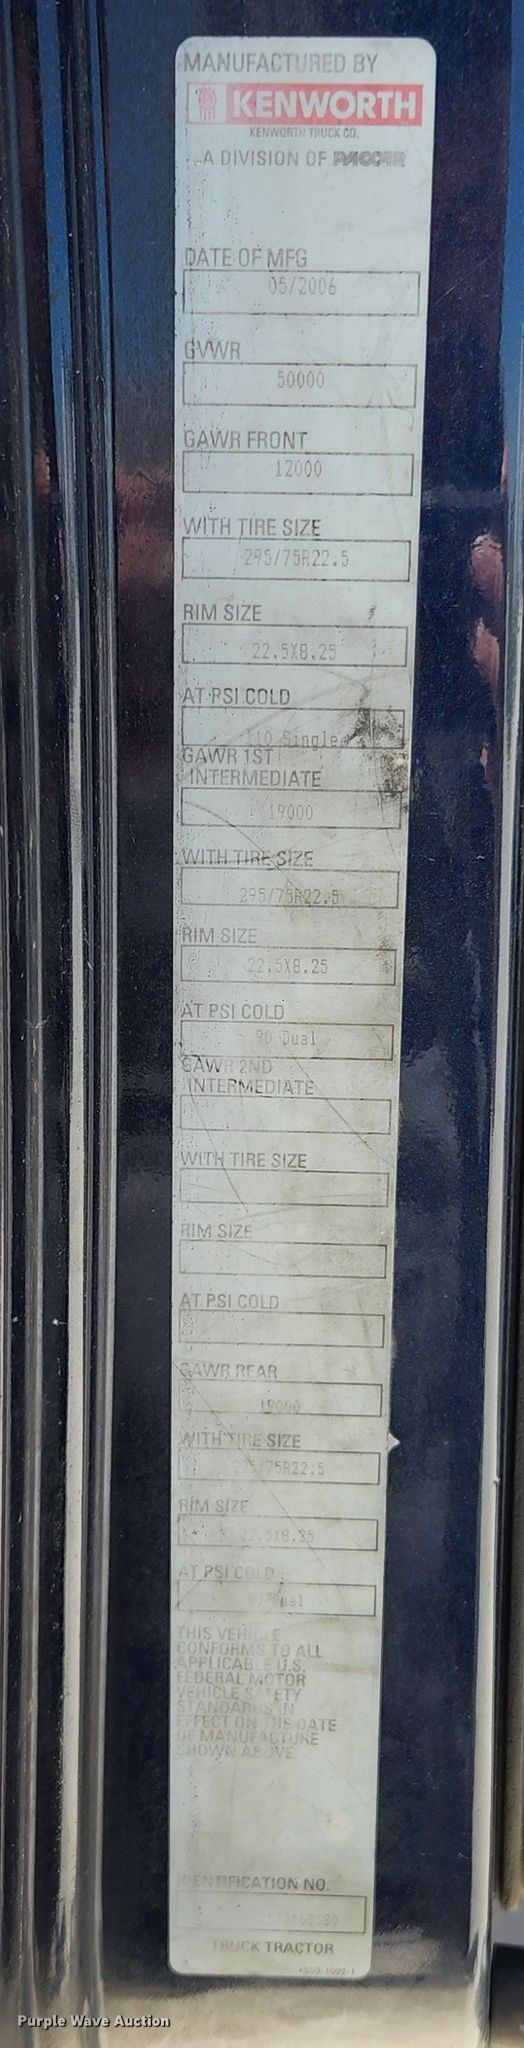 MANUFACTURED BY
KENWORTH
KENWORTH TRUCK CO.
A DIVISION OF PACCAR
DATE OF MFG
05/2006
GVWR
50000
GAWR FRONT
12000
WITH TIRE SIZE
295/75R22.5
RIM SIZE
22.5X8.25
AT PSI COLD
110 Single
GAWR 1ST
INTERMEDIATE
19000
WITH TIRE SIZE
295/75R22.5
RIM SIZE
22.5X8.25
AT PSI COLD
90 Dual
GAWR 2ND
INTERMEDIATE
WITH TIRE SIZE
RIM SIZE
AT PSI COLD
GAWR REAR
19000
WITH TIRE SIZE
295/75R22.5
RIM SIZE
22.5X8.25
AT PSI COLD
90 Dual
THIS VEHICLE
CONFORMS TO ALL
APPLICABLE U.S.
FEDERAL MOTOR
VEHICLE SAFETY
STANDARDS IN
EFFECT ON THE DATE
OF MANUFACTURE
SHOWN ABOVE.
IDENTIFICATION NO.
TRUCK TRACTOR
Purple Wave Auction